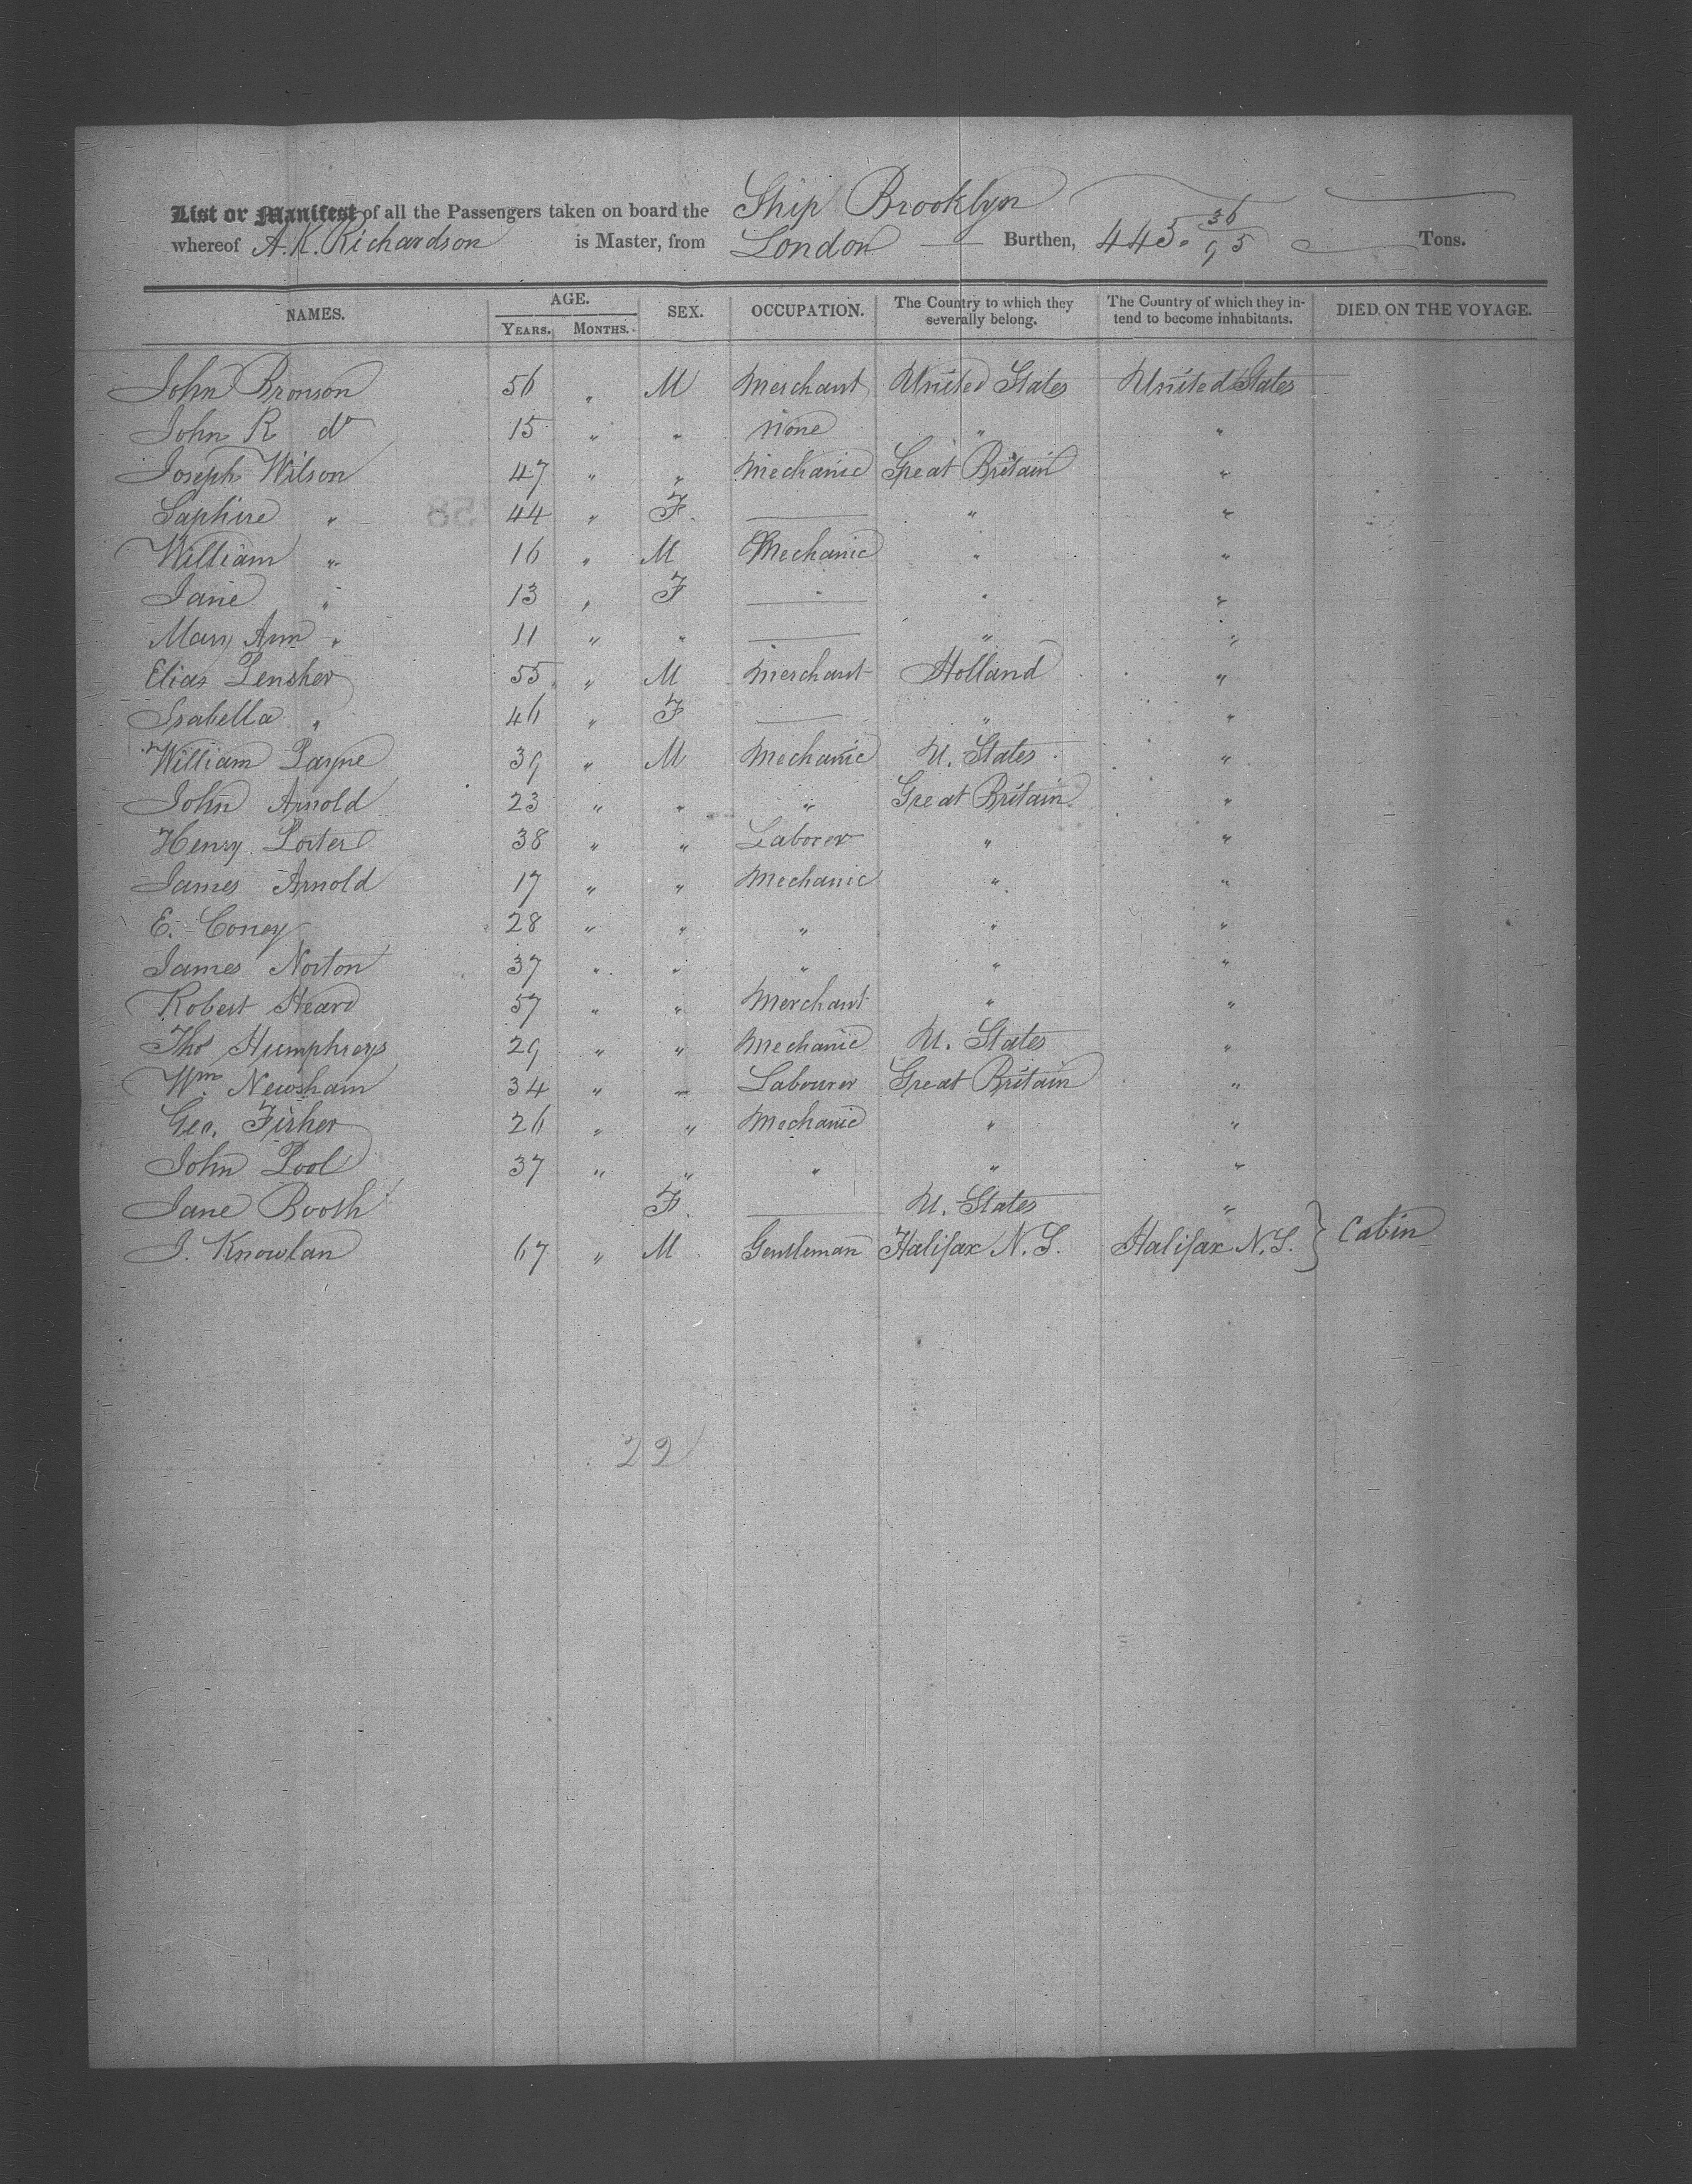 List or Manifest of all the Passengers taken on board the Ship Brooklyn
whereof A. K. Richardson is Master, from London Burthen, 445 36/95 Tons.
NAMES. AGE. SEX. OCCUPATION. The Country to which they severally belong. The Country of which they intend to become inhabitants. DIED ON THE VOYAGE.
YEARS. MONTHS.
John Bronson 56 " M Merchant United States United States
John R do 15 " " None " "
Joseph Wilson 47 " " Mechanic Great Britain "
Saphire " 44 " F. — " "
William " 16 " M Mechanic " "
Jane " 13 " F — " "
Mary Ann " 11 " " — " "
Elias Pensher 55 " M Merchant Holland "
Isabella " 46 " F — " "
William Payne 39 " M Mechanic U. States "
John Arnold 23 " " " Great Britain "
Henry Porter 38 " " Laborer " "
James Arnold 17 " " Mechanic " "
E. Coney 28 " " " " "
James Norton 37 " " " " "
Robert Heard 57 " " Merchant " "
Thos Humphreys 29 " " Mechanic U. States "
Wm. Newsham 34 " " Labourer Great Britain "
Geo. Fisher 26 " " Mechanic " "
John Pool 37 " " " " "
Jane Booth F. — U. States "
J. Knowlan 67 " M Gentleman Halifax N. S. Halifax N. S. } Cabin
22